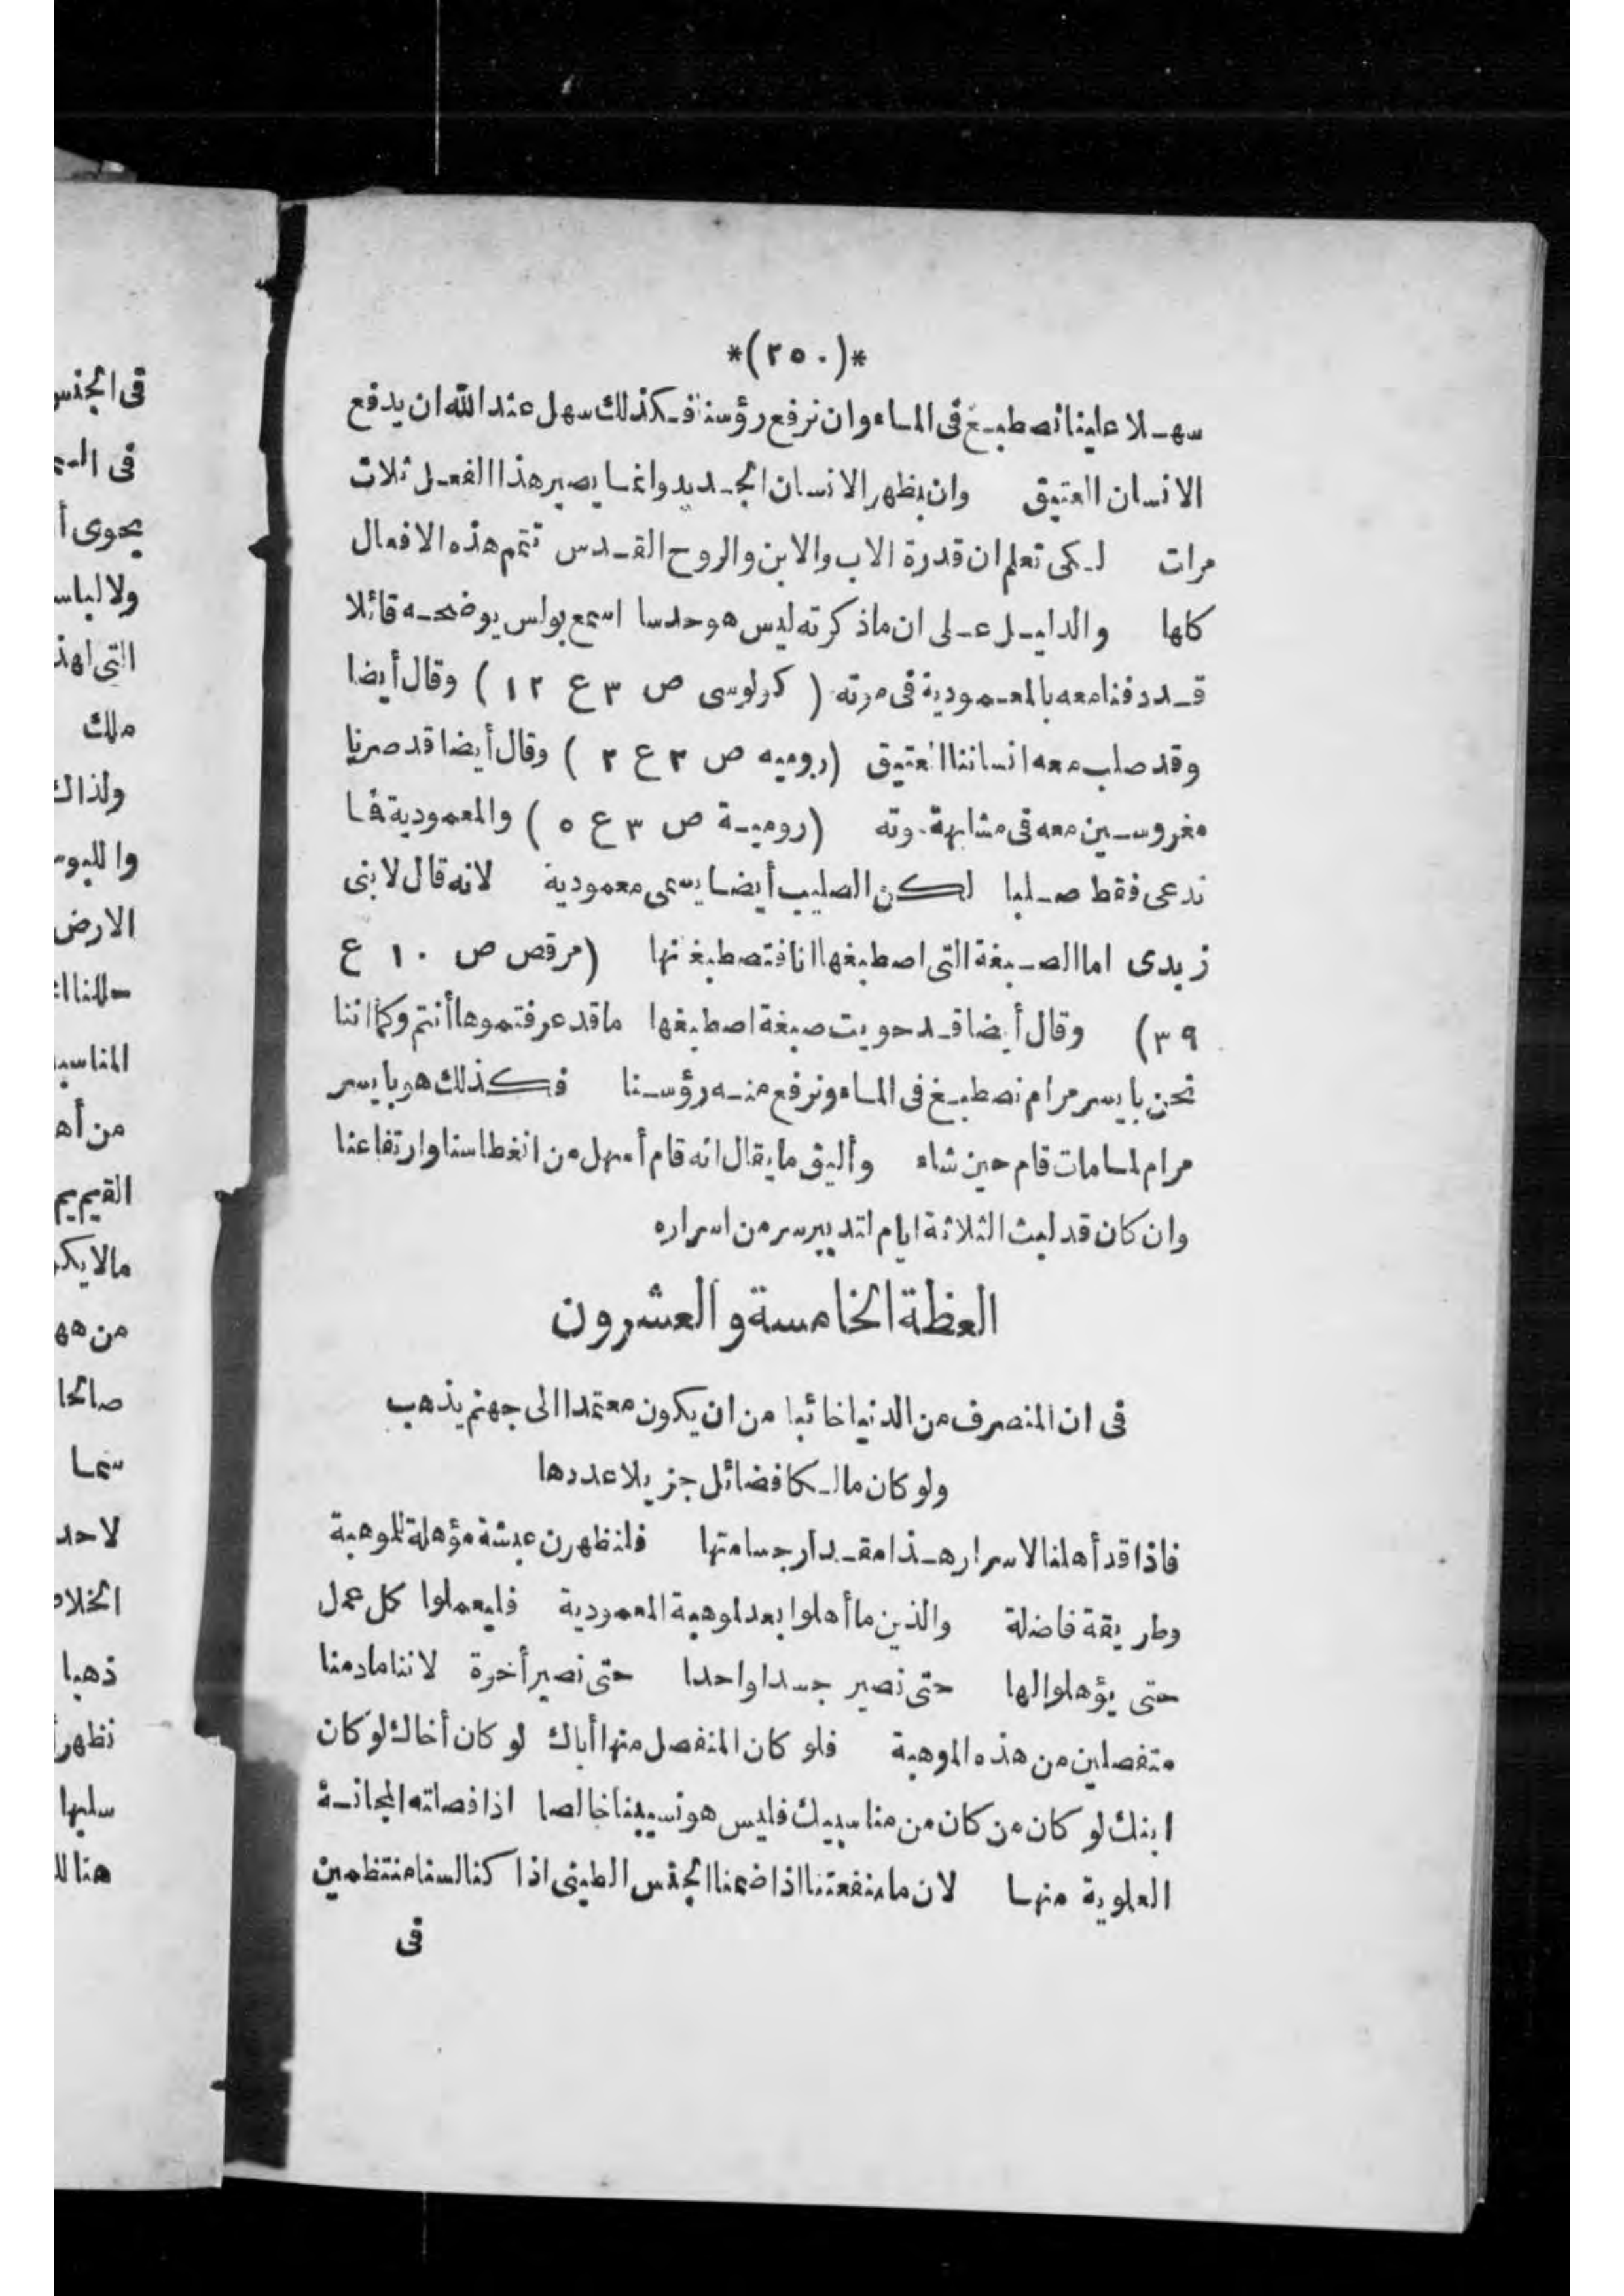 *(٢٥٠)*
سهلا علينا نصطبغ فى الماء وان نرفع رؤسنا فكذلك سهل عند الله ان يدفع
الانسان العتيق وان يظهر الانسان الجديد وانما يصير هذا الفعل ثلاث
مرات لكى تعلم ان قدرة الاب والابن والروح القدس تتمم هذه الافعال
كلها والدليل على ان ماذكرته ليس هو حدسا اسمع بولس يوضحه قائلا
قد دفنا معه بالمعمودية فى موته (كولوسى ص ٣ ع ١٢) وقال أيضا
وقد صلب معه انساننا العتيق (روميه ص ٣ ع ٢) وقال أيضا قد صرنا
مغروسين معه فى مشابهة موته (رومية ص ٣ ع ٥) والمعمودية فما
ندعى فقط صليبا لكن الصليب أيضا يسمى معمودية لانه قال لابنى
زبدى اما الصبغة التى اصطبغها انا فتصطبغانها (مرقص ص ١٠ ع
٣٩) وقال أيضا قد حويت صبغة اصطبغها ماقد عرفتموها أنتم وكما اننا
نحن بايسر مرام نصطبغ فى الماء ونرفع منه رؤسنا فكذلك هو بايسر
مرام لما مات قام حين شاء وأليق ما يقال انه قام أسهل من انغطاسنا وارتفاعنا
وان كان قد لبث الثلاثة ايام لتدبير سر من اسراره
العظة الخامسة والعشرون
فى ان المنصرف من الدنيا خائبا من ان يكون معتمدا الى جهنم يذهب
ولو كان مالكا فضائل جزيلا عددها
فاذا قد أهلنا لاسرار هذا مقدار جسامتها فلنظهرن عيشة مؤهلة للموهبة
وطريقة فاضلة والذين ما أهلوا بعد لموهبة المعمودية فليعملوا كل عمل
حتى يؤهلوا لها حتى نصير جسدا واحدا حتى نصير أخوة لاننا مادمنا
منفصلين من هذه الموهبة فلو كان المنفصل منها أباك لو كان أخاك لو كان
ابنك لو كان من كان من مناسبيك فليس هو نسيبنا خالصا اذا فصلته المجانسة
العلوية منها لان ما منفعتنا اذا ضمنا الجنس الطينى اذا كنا لسنا منتظمين
فى
فى الجنس
يحوى
ولا لباس
ملك
ولذلك
الارض
من
مالا
من
صالحا
سما
لاحد
ذهبا
سلبها